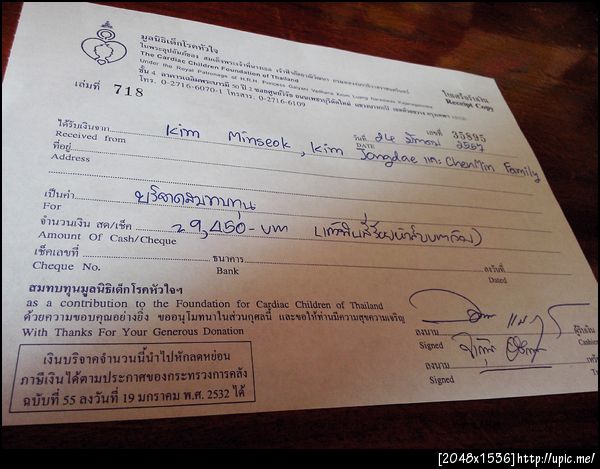 มูลนิธิเด็กโรคหัวใจ
ในพระอุปถัมภ์ของ สมเด็จพระเจ้าพี่นางเธอ เจ้าฟ้ากัลยาณิวัฒนา กรมหลวงนราธิวาสราชนครินทร์
The Cardiac Children Foundation of Thailand
Under the Royal Patronage of H.R.H. Princess Galyani Vadhana Krom Luang Naradhiwas Rajanagarindra
ชั้น 4 อาคารเฉลิมพระบารมี 50 ปี 2 ซอยศูนย์วิจัย ถนนเพชรบุรีตัดใหม่
โทร. 0-2716-6070-1 โทรสาร. 0-2716-6109
ใบเสร็จรับเงิน
Receipt Copy
เล่มที่ 718
เลขที่ 35895
วันที่ 24 มีนาคม 2557
DATE
ได้รับเงินจาก Kim Minseok, Kim Jongdae และ ChenMin Family
Received from
ที่อยู่
Address
เป็นค่า บริจาคสมทบทุน
For
จำนวนเงิน สด/เช็ค 9,450- บาท (เก้าพันสี่ร้อยห้าสิบบาทถ้วน)
Amount Of Cash/Cheque
เช็คเลขที่ ธนาคาร ลงวันที่
Cheque No. Bank Dated
สมทบทุนมูลนิธิเด็กโรคหัวใจฯ
as a contribution to the Foundation for Cardiac Children of Thailand
ด้วยความขอบคุณอย่างยิ่ง ขออนุโมทนาในส่วนกุศลนี้ และขอให้ท่านมีความสุขความเจริญ
With Thanks For Your Generous Donation
ลงนาม
Signed
ลงนาม
Signed
เงินบริจาคจำนวนนี้นำไปหักลดหย่อน
ภาษีเงินได้ตามประกาศของกระทรวงการคลัง
ฉบับที่ 55 ลงวันที่ 19 มกราคม พ.ศ. 2532 ได้
[2048x1536]http://upic.me/